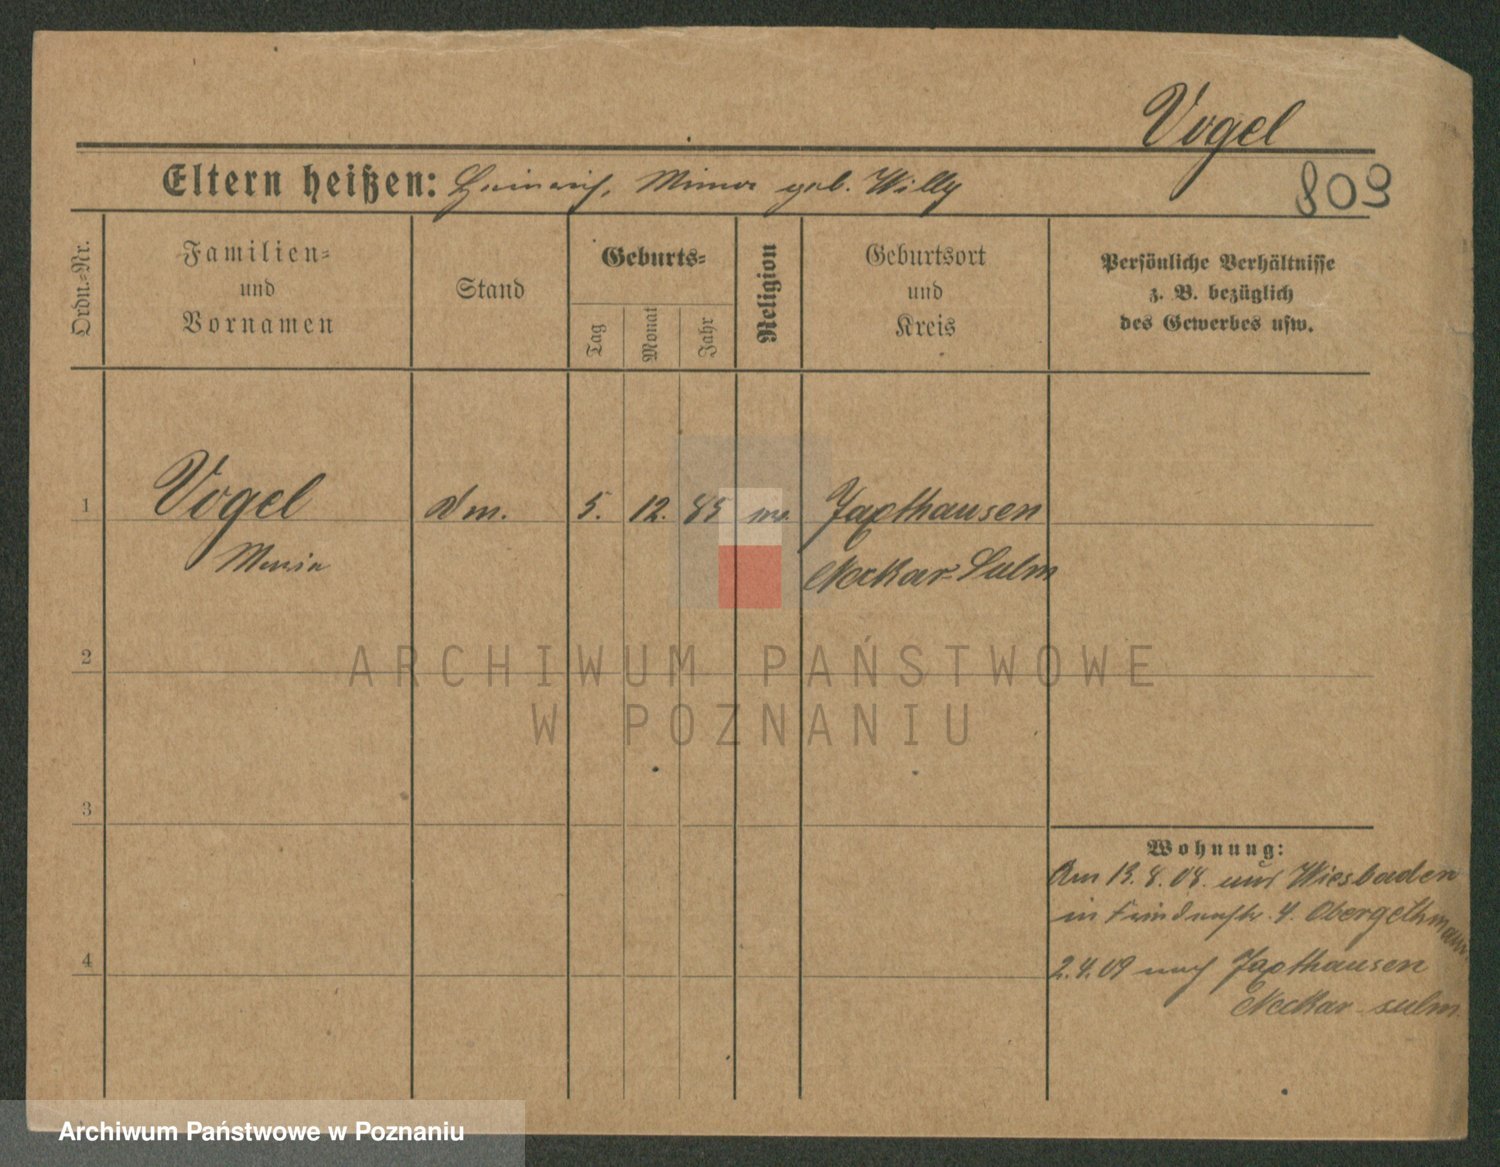 Vogel
Eltern heißen: Heinrich, Minna geb. Willy
809
Ordn.-Nr.
Familien-
und
Vornamen
Stand
Geburts-
Tag
Monat
Jahr
Religion
Geburtsort
und
Kreis
Persönliche Verhältnisse
z. B. bezüglich
des Gewerbes usw.
1
Vogel
5.
12.
85
Jaxthausen
Maria
Neckar-Sulm
ARCHIWUM PAŃSTWOWE
W POZNANIU
2
3
Wohnung:
Am 13.8.08. aus Wiesbaden
in 4. Obergethmann
4
2.4.09 nach Jaxthausen
Neckar-sulm.
Archiwum Państwowe w Poznaniu